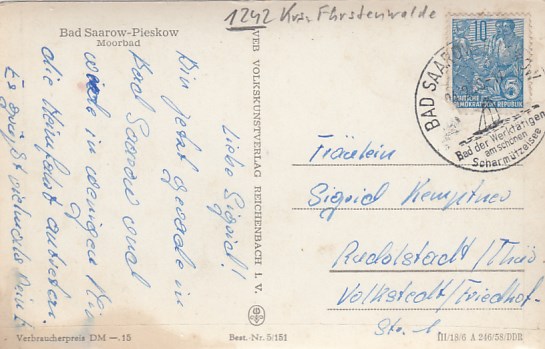 1242 Krs. Fürstenwalde
Bad Saarow-Pieskow
Moorbad
Liebe Sigrid!
Bin jetzt gerade in
Bad Saarow und
werde in wenigen
die Heimfahrt antreten.
Es grüßt vielmals Dein
VEB VOLKSKUNSTVERLAG REICHENBACH I. V.
DEUTSCHE
DEMOKRATISCHE REPUBLIK
BAD SAAROW
Bad der Werktätigen
am schönen
Scharmützelsee
Fräulein
Sigrid Kemptner
Rudolstadt/Thür.
Volkstedt/Friedhof-
Str. 1
Verbraucherpreis DM —.15
Best.-Nr. 5/151
III/18/6 A 246/58/DDR